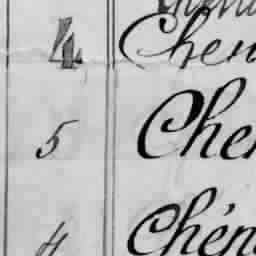 4 Chen
5 Che
4 Chén